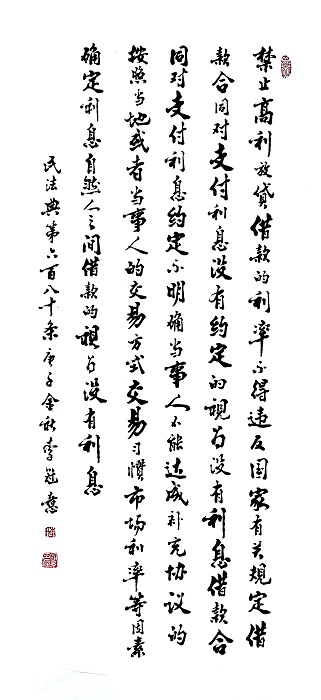 禁止高利放贷借款的利率不得违反国家有关规定借
款合同对支付利息没有约定的视为没有利息借款合
同对支付利息约定不明确当事人不能达成补充协议的
按照当地或者当事人的交易方式交易习惯市场利率等因素
确定利息自然人之间借款的视为没有利息
民法典第六百八十条庚子金秋李冠意